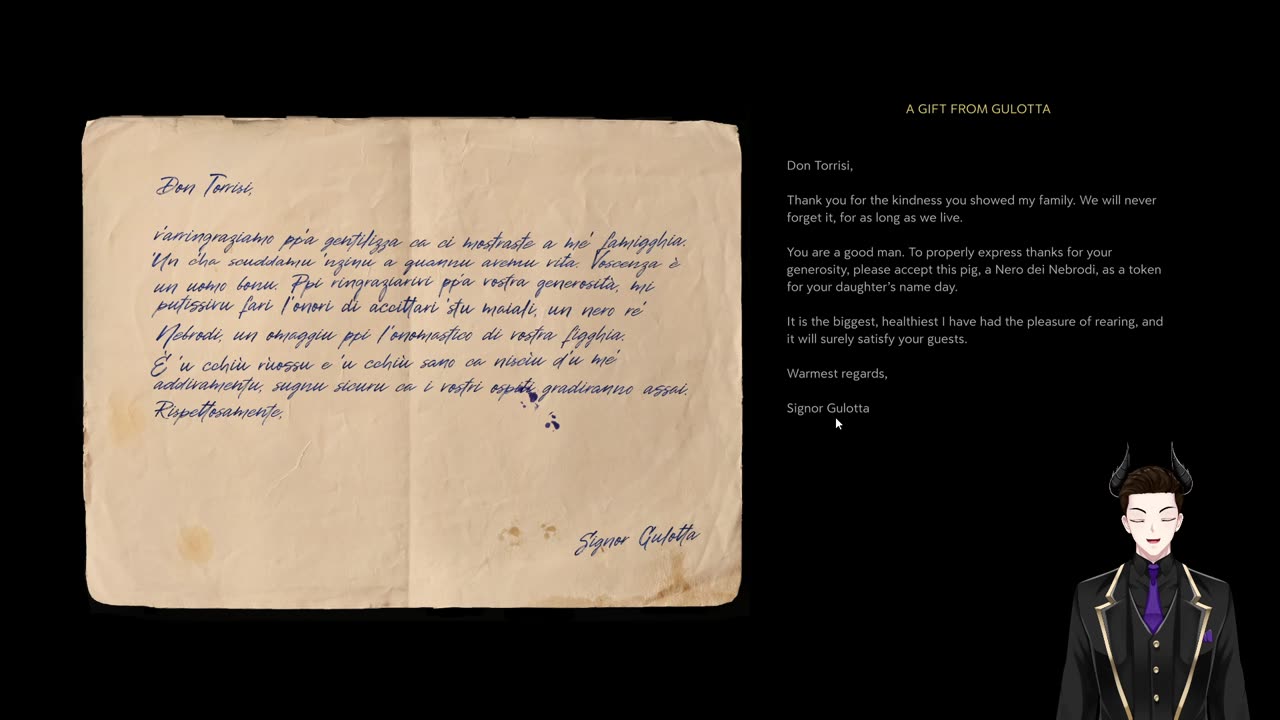 Don Torrisi,
v'arringraziamo pp'a gentilizza ca ci mostraste a mé famigghia.
'Un c'ha scuddamu 'nzinu a quannu avemu vita. Voscenza è
un uomo bonu. Ppi ringraziarivi pp'a vostra generosità, mi
putissivu fari l'onori di accittari 'stu maiali, un nero ré
Nebrodi, un omaggiu ppi l'onomastico di vostra figghia.
È 'u cchiù ruossu e 'u cchiù sano ca nisciu d'u mé
addivamentu, sugnu sicuru ca i vostri ospiti gradiranno assai.
Rispettosamente,
Signor Gulotta
A GIFT FROM GULOTTA
Don Torrisi,
Thank you for the kindness you showed my family. We will never
forget it, for as long as we live.
You are a good man. To properly express thanks for your
generosity, please accept this pig, a Nero dei Nebrodi, as a token
for your daughter's name day.
It is the biggest, healthiest I have had the pleasure of rearing, and
it will surely satisfy your guests.
Warmest regards,
Signor Gulotta